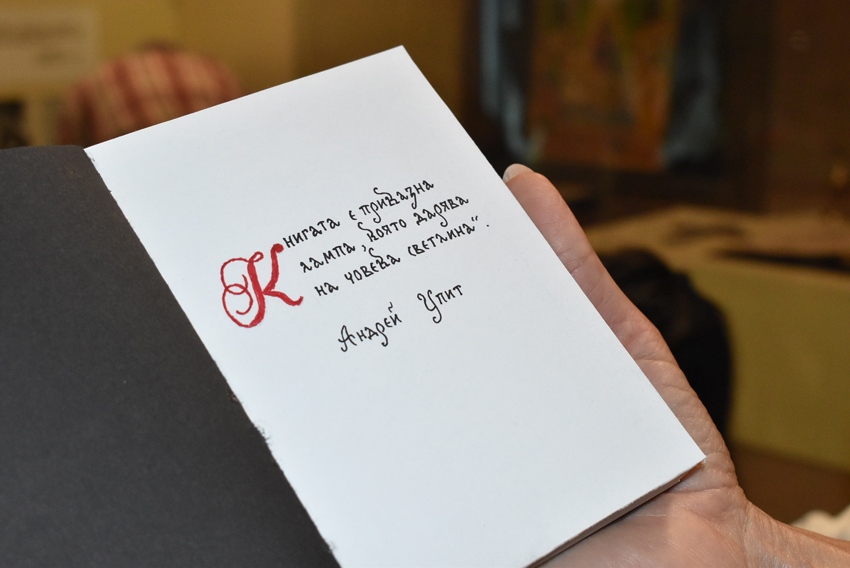 Книгата е приказна
лампа, която дарява
на човека светлина".
Андрей Упит